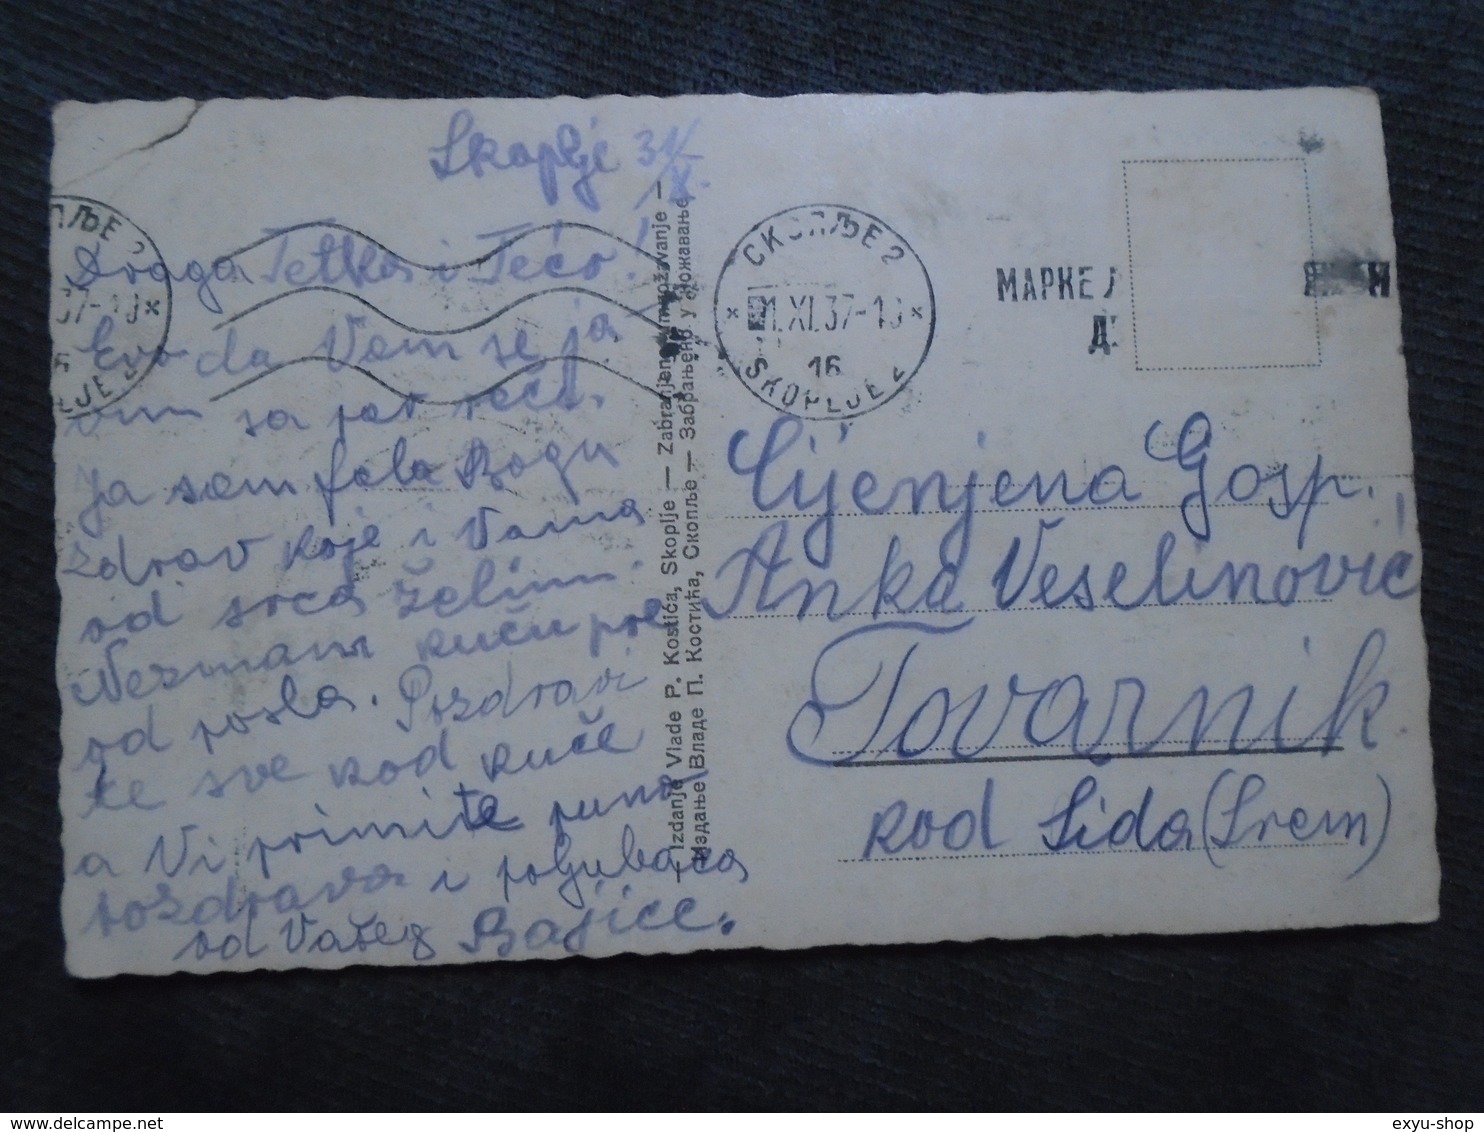 Skoplje 31/X.
Draga Tetka i Tečo!
Evo da Vam se ja
vim sa par reči.
Ja sam fala Bogu
zdrav koje i Vama
od srca želim.
Nezmam kuču pre
od posla. Pozdravi
te sve kod kuče
a Vi primite puno
pozdrava i poljubaca
od Vašeg Bajice.
— Izdanje Vlade P. Kostića, Skoplje — Zabranjeno umnožavanje —
Издање Владе П. Костића, Скопље — Забрањено умножавање
ПЉЕ 2
37-10 ×
LJE 2
СКОПЉЕ 2
× 1.XI.37-10 ×
16
SKOPLJE 2
МАРКЕ
Д
Cijenjena Gosp.,
Anka Veselinović
Tovarnik
kod Šida (Srem)
exyu-shop
www.delcampe.net